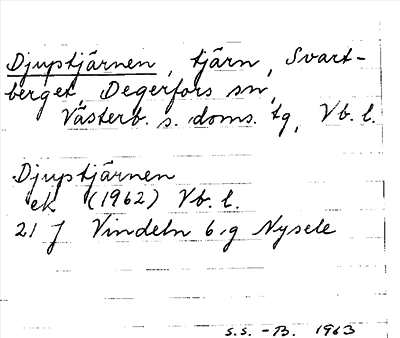 Djuptjärnen, tjärn, Svart-
berget, Degerfors sn,
Västerb. s. doms. tg, Vb. l.
Djuptjärnen
ek (1962) Vb. l.
21 J Vindeln 6 g Nysele
S.S. - B. 1963